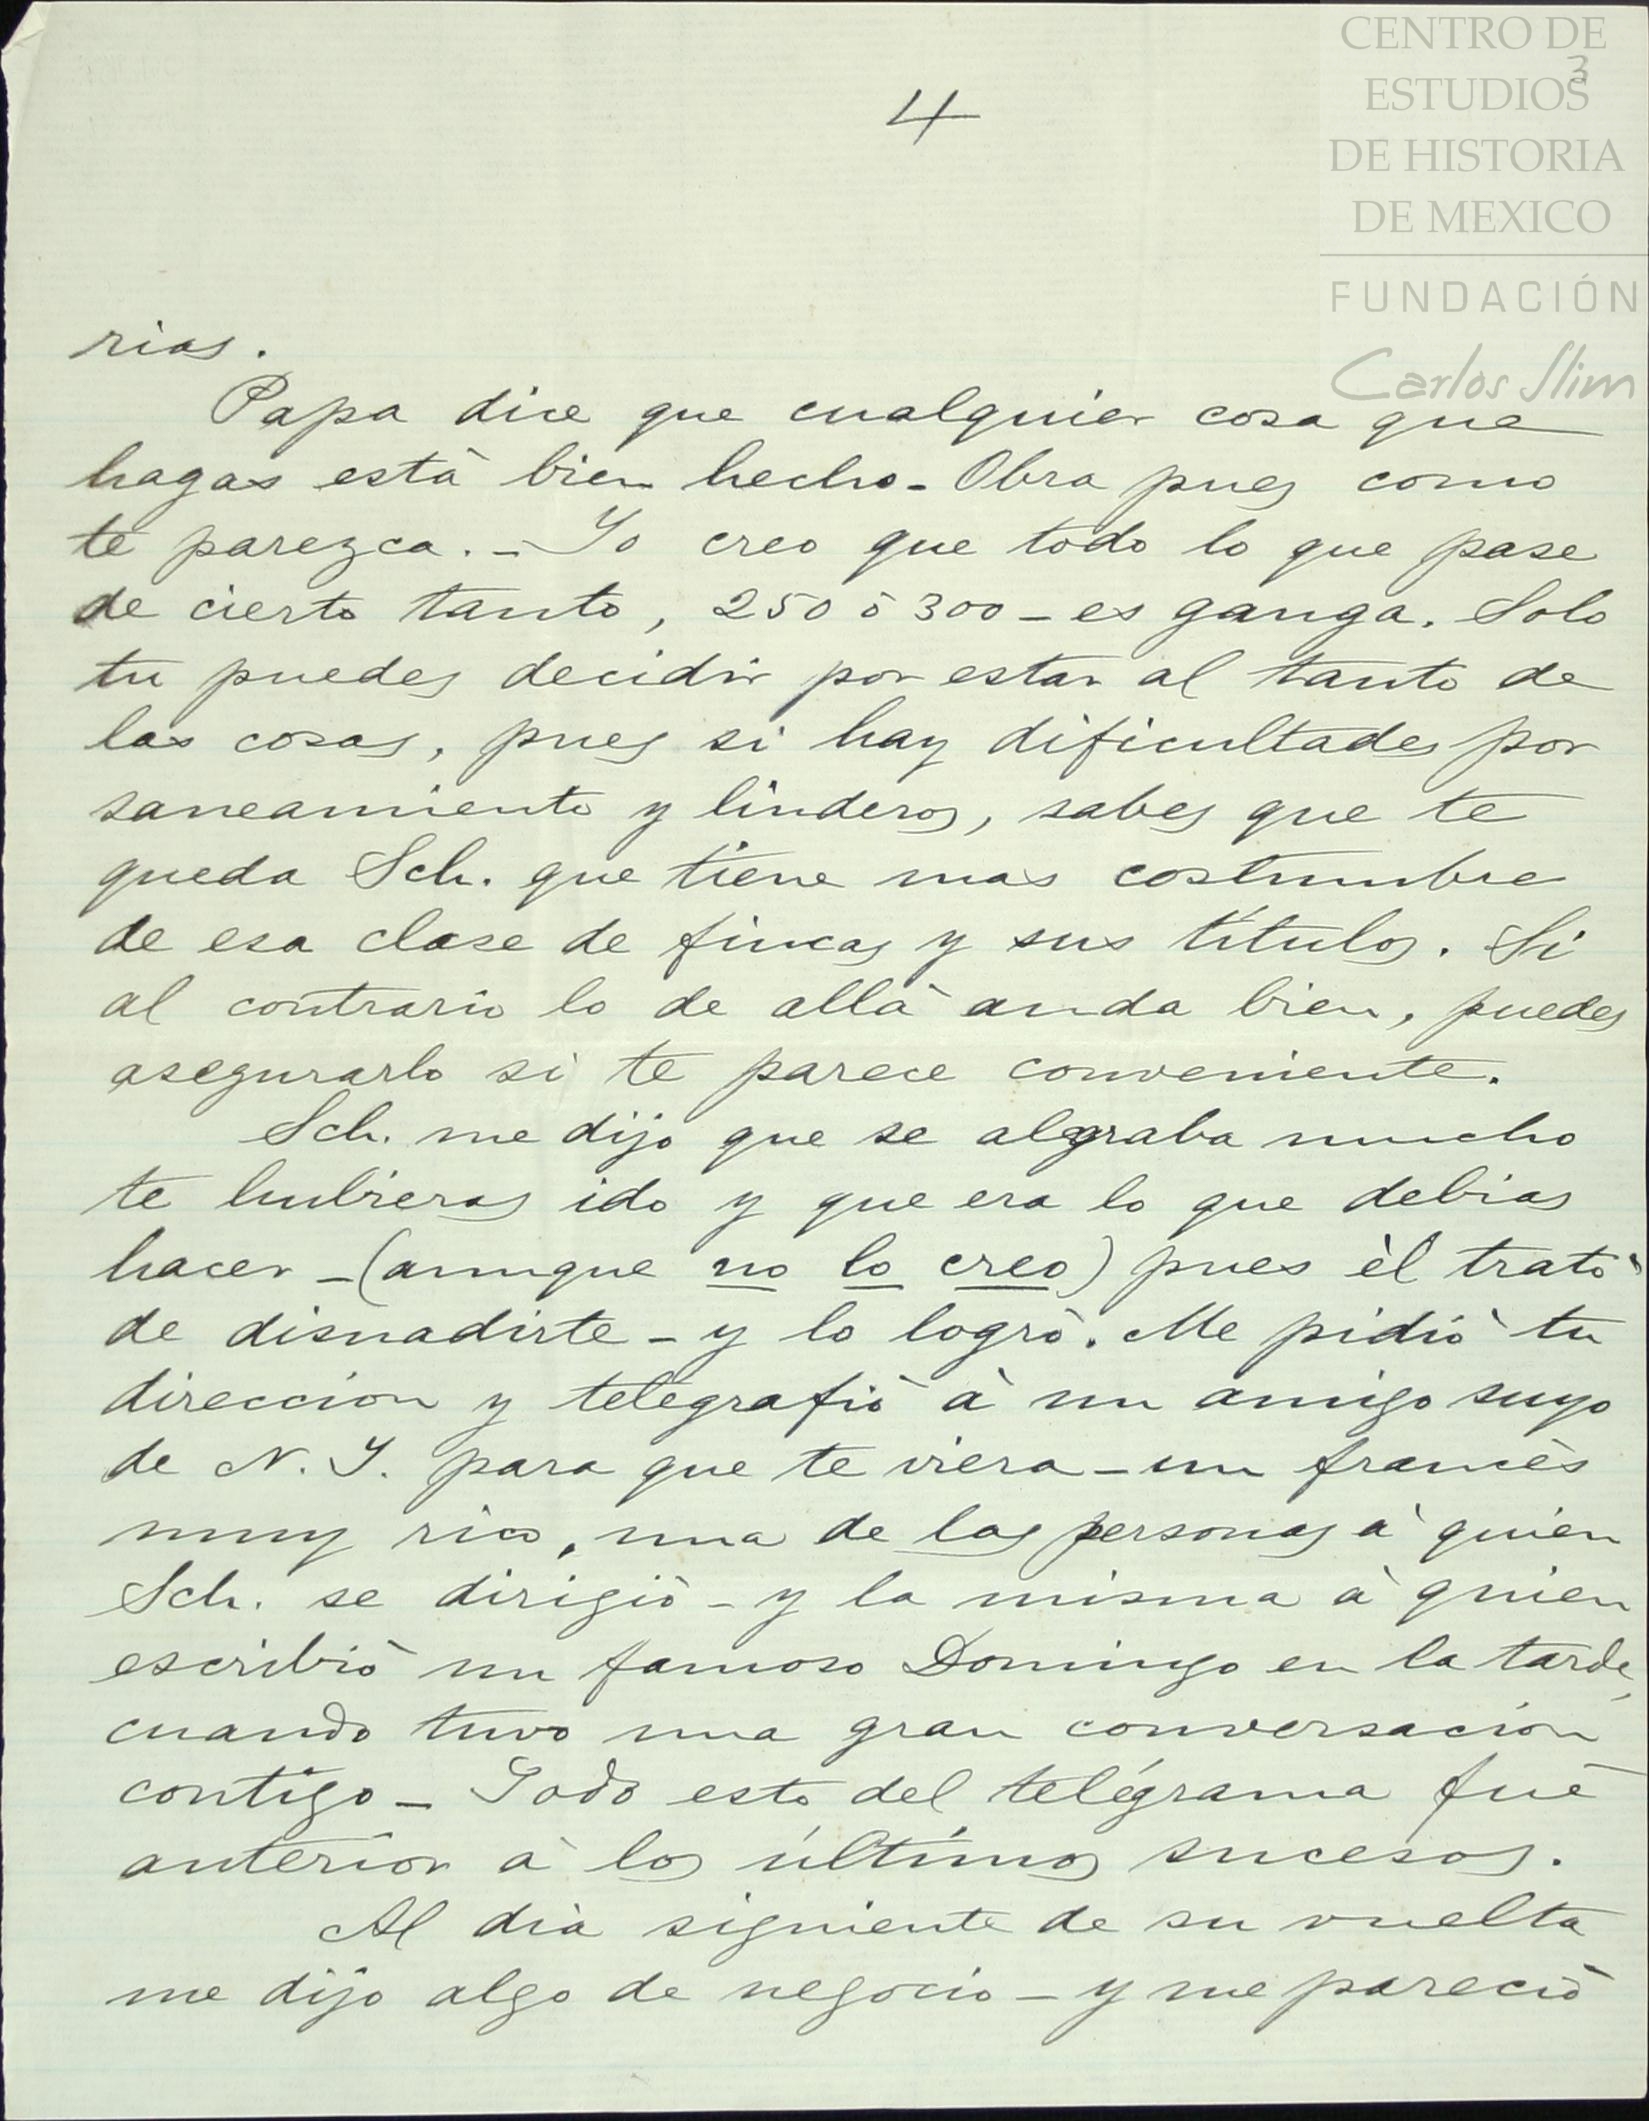 CENTRO DE
ESTUDIOS
DE HISTORIA
DE MEXICO
FUNDACIÓN
Carlos Slim
3
4
rias.
Papa dice que cualquier cosa que
hagas está bien hecho - Obra pues como
te parezca. - Yo creo que todo lo que pase
de cierto tanto, 250 ò 300 - es ganga. Solo
tu puedes decidir por estar al tanto de
las cosas, pues si hay dificultades por
saneamiento y linderos, sabes que te
queda Sch. que tiene mas costumbre
de esa clase de fincas y sus títulos. Si
al contrario lo de allà anda bien, puedes
asegurarlo si te parece conveniente.
Sch. me dijo que se algraba mucho
te hubieras ido y que era lo que debias
hacer - (aunque no lo creo) pues èl tratò
de disuadirte - y lo logrò. Me pidiò tu
direccion y telégrafiò à un amigo suyo
de N. Y. para que te viera - un francès
muy rico, una de las personas à quien
Sch. se dirigiò - y la misma à quien
escribiò un famoso Domingo en la tarde,
cuando tuvo una gran conversación
contigo - Todo esto del telégrama fué
anterior à los últimos sucesos.
Al dia siguiente de su vuelta
me dijo algo de negocio - y me pareciò